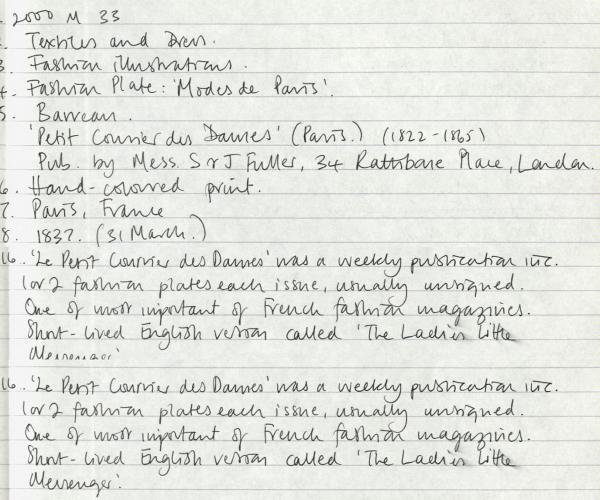 1. 2000 M 33
2. Textiles and Dress.
3. Fashion illustrations.
4. Fashion Plate: 'Modes de Paris'.
5. Barreau.
'Petit Courrier des Dames' (Paris.) (1822-1865)
Pub. by Mess. S & J Fuller, 34 Rathbone Place, London.
6. Hand-coloured print.
7. Paris, France
8. 1837. (31 March.)
16. 'Le Petit Courrier des Dames' was a weekly publication inc.
1 or 2 fashion plates each issue, usually unsigned.
One of most important of French fashion magazines.
Short-lived English version called 'The Ladies Little
Messenger'
16. 'Le Petit Courrier des Dames' was a weekly publication inc.
1 or 2 fashion plates each issue, usually unsigned.
One of most important of French fashion magazines.
Short-lived English version called 'The Ladies Little
Messenger'.